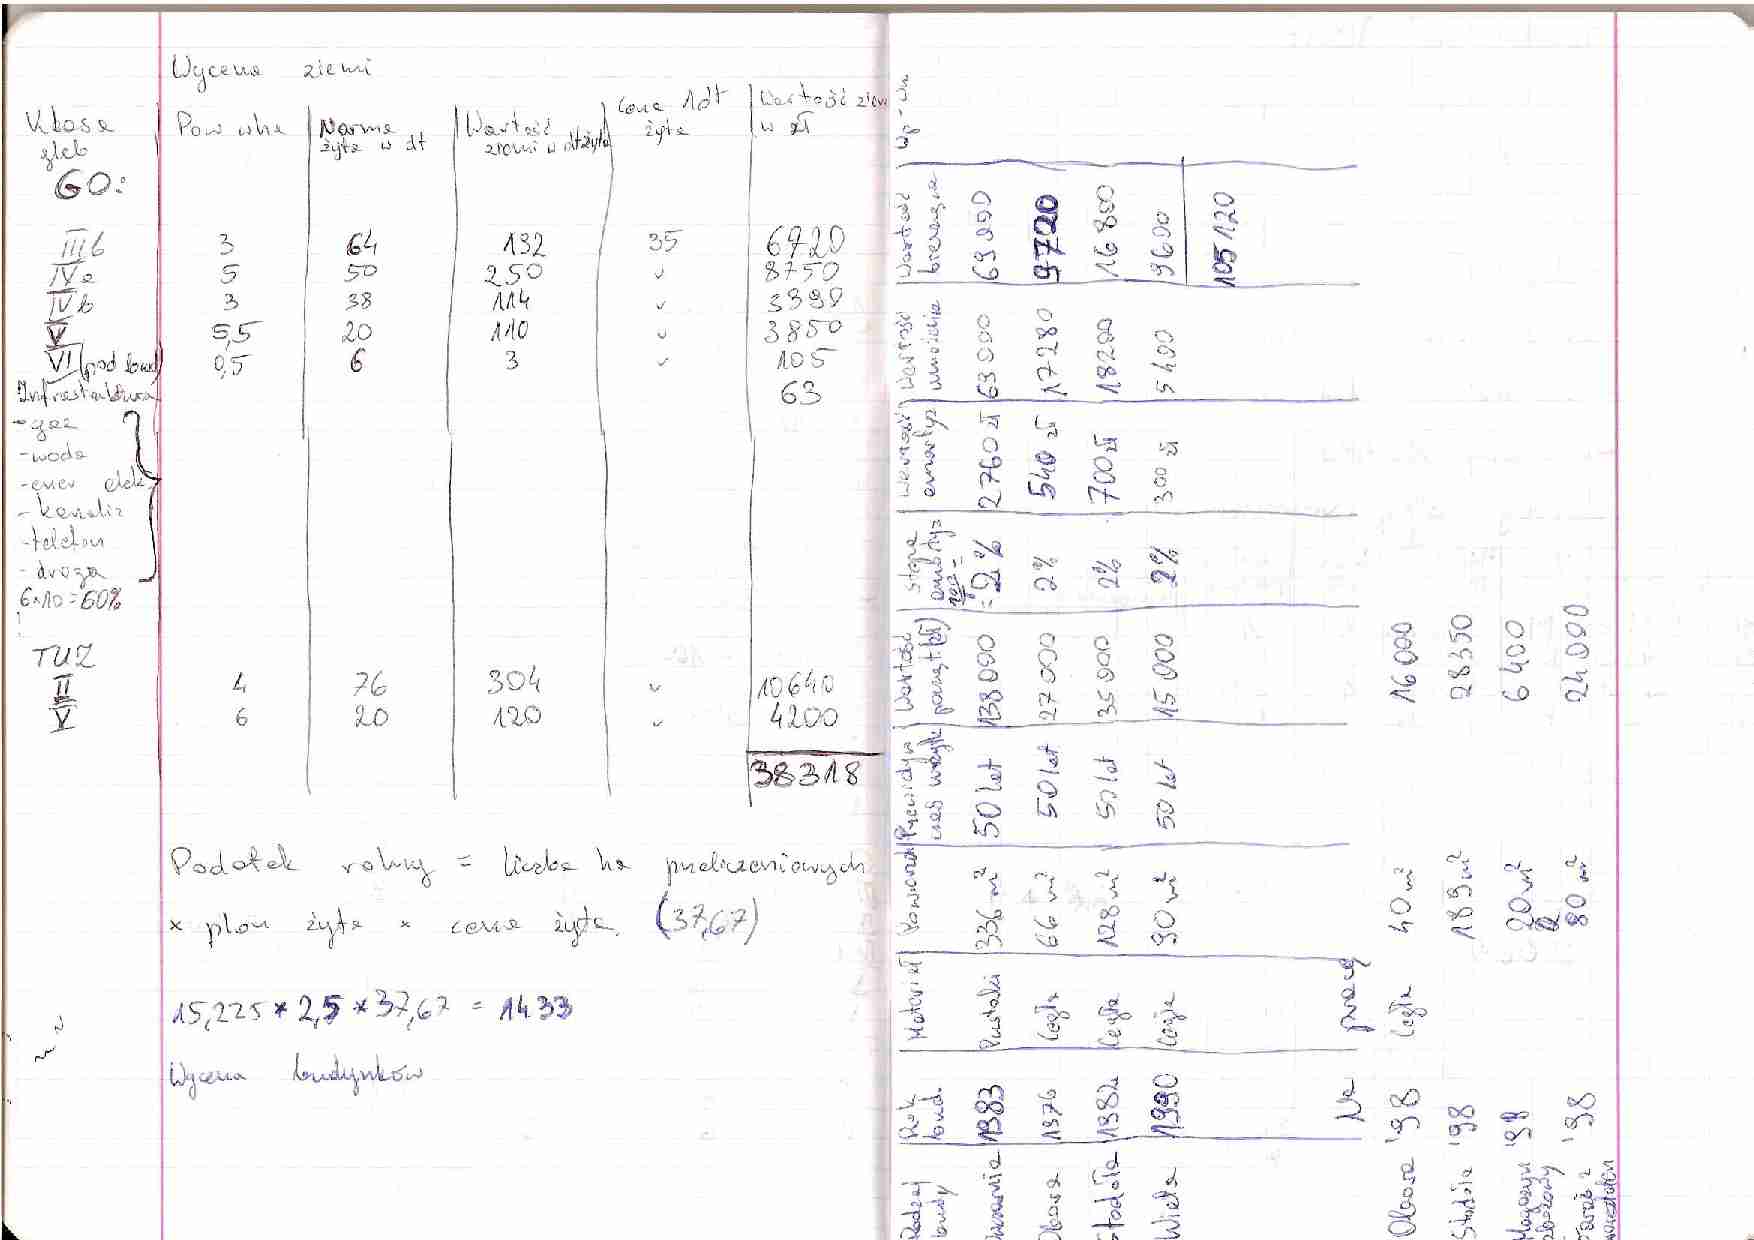 Wycena ziemi
Klasa gleb | Pow w ha | Norma żyta w dt | Wartość ziemi w dt żyta | Cena 1dt żyta | Wartość ziemi w zł
GO:
IIIb 3 64 192 35 6720
IVa 5 50 250 〃 8750
IVb 3 38 114 〃 3990
V 5,5 20 110 〃 3850
VI (pod bud) 0,5 6 3 〃 105
Infrastruktura 63
- gaz
- woda
- ener elek
- kanaliz
- telefon
- droga
6×10=60%
TUZ
II 4 76 304 〃 10640
V 6 20 120 〃 4200
38318
Podatek rolny = liczba ha przeliczeniowych
× plon żyta × cena żyta (37,67)
15,225 * 2,5 * 37,67 = 1433
Wycena budynków
Rodzaj budy | Rok bud. | Materiał | Powierzch | Przewidyw czas użytk | Wartość począt (zł) | Stopa amorty= = 2% | Wartość amortyz | Wartość umorzenia | Wartość bieżąca | Wp - Wu
1983 Pustaki 336 m² 50 lat 138000 2% 2760 zł 69000 69000
Obora 1976 Cegła 66 m² 50 lat 27000 2% 540 zł 17280 9720
Stodoła 1982 Cegła 128 m² 50 lat 35000 2% 700 zł 18200 16800
Wiata 1990 Cegła 90 m² 50 lat 15000 2% 300 zł 5400 9600
105120
Na pracę
Obora '98 Cegła 40 m² 16000
Stodoła '98 189 m² 28350
Magazyn '98 20 m² 6400
Garaż z '98 80 m² 24000